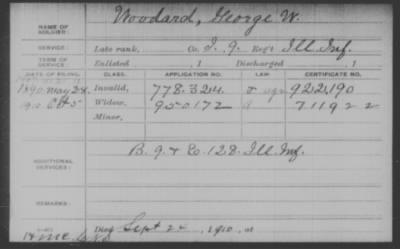 NAME OF SOLDIER: Woodard, George W.
SERVICE: Late rank, Co. I, 9. Reg't Ill. Inf.
TERM OF SERVICE: Enlisted , 1 Discharged , 1
DATE OF FILING. CLASS. APPLICATION NO. LAW. CERTIFICATE NO.
1890 May 24 Invalid, 778.324 922,190
1910 Oct 5 Widow, 950172 711922
Minor,
ADDITIONAL SERVICES: B. 9. & E. 128. Ill. Inf.
REMARKS:
Died Sept 24 , 1910, at